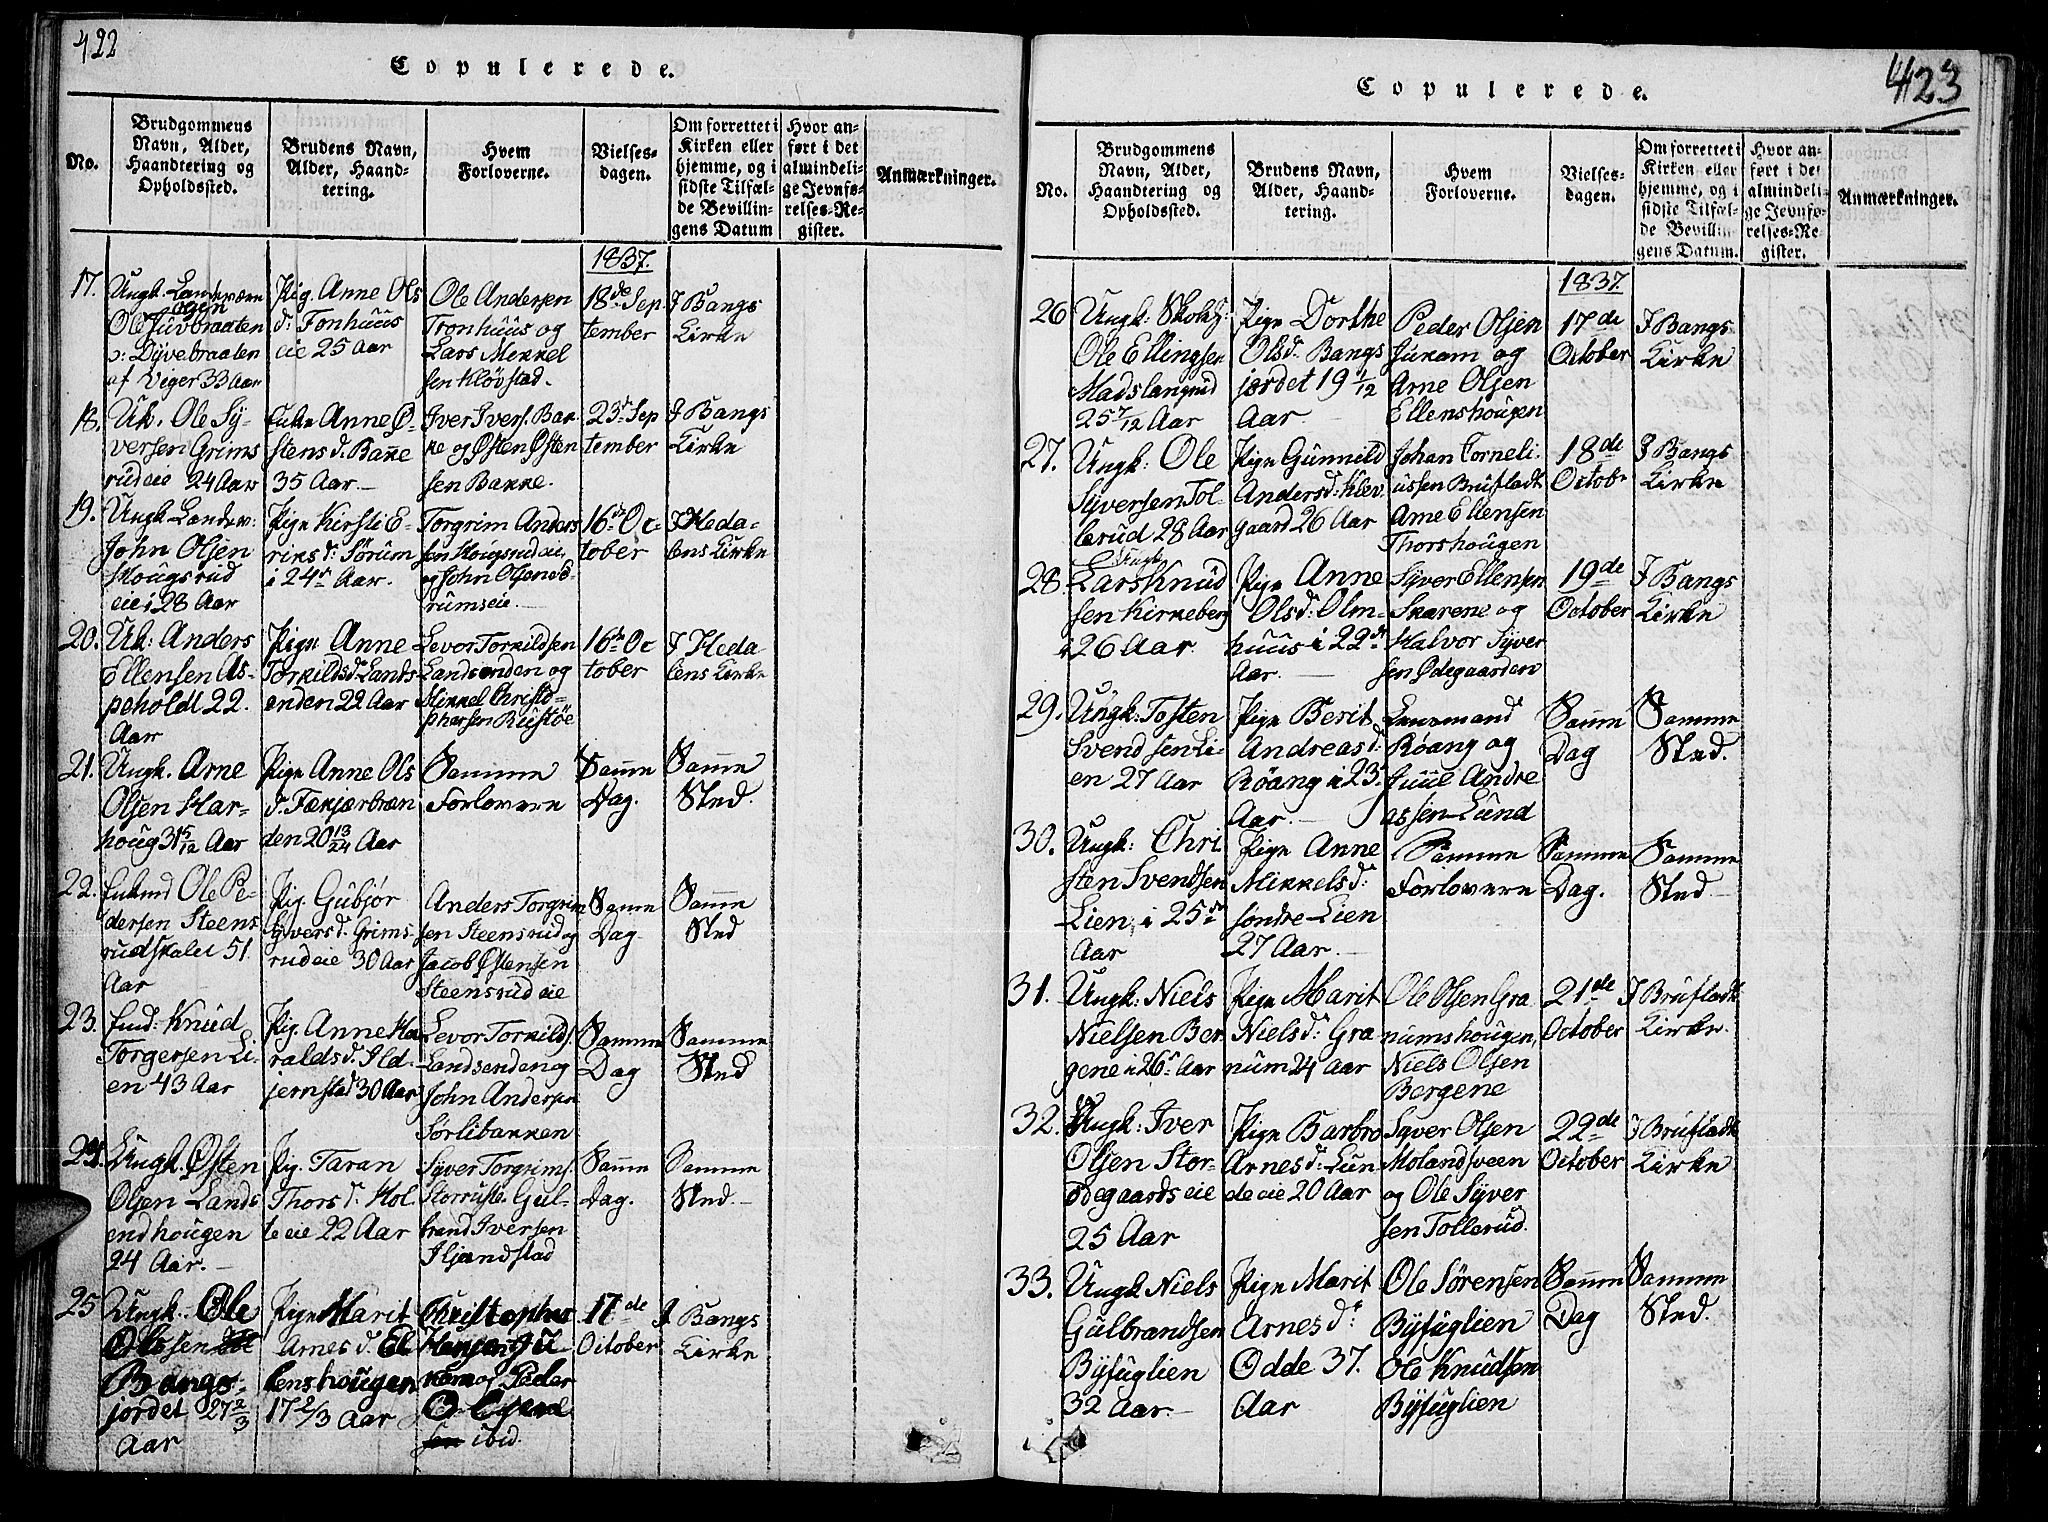 422
Copulerede.
No.
Brudgommens
Navn, Alder,
Haandtering og
Opholdssted.
Brudens Navn,
Alder, Haand-
tering.
Hvem
Forloverne.
Vielses-
dagen.
Om forrettet i
Kirken eller
hjemme, og i
sidste Tilfæl-
de Bevillin-
gens Datum
Hvor an-
ført i det
almindeli-
ge Jevnfø-
relses-Re-
gister.
Anmærkninger.
1837.
17.
Ungk. Landeværn
Olsen
Ole Juvbraaten
ɔ: Dyvebraaten
af Viger 33 Aar
Pig. Anne Ols
d: Fonhuus
eie 25 Aar
Ole Andersen
Tronhuus og
Lars Mekkel
sen Kløvstad.
18de Sep
tember
I Bangs
Kirke
18.
Uk. Ole Sy-
versen Grims
rudeie 24 Aar
Enke Anne Ø
stens d. Bakke
35 Aar.
Iver Ivers. Bak
ke og Østen Østen
sen Bakke.
23d Sep
tember
I Bangs
Kirke
19.
Ungk Landev:
John Olsen
Hougsrud
eie i 28 Aar
Pige Kirsti E-
riks d: Sørum
i 24d Aar.
Torgrim Anders
sen Hougsrudeie,
og John Olsen Sø-
rumseie.
16de Oc
tober
I Heda-
lens Kirke
20.
Uk: Anders
Ellensen As-
peholdt 22.
Aar
Pige Anne
Torkildsd. Lands
enden 22 Aar
Levor Torkildsen
Landsenden og
Mikkel Christo-
phersen Rustøe
16de Oc
tober
I Heda
lens Kirke
21.
Ungk. Arne
Olsen Har-
houg 31 5/12 Aar
Pige Anne Ols
d. Fækjærbræn
den 20 13/24 Aar
Samme
Forlovere
Samme
Dag.
Samme
Sted.
22.
Enkmd Ole Pe-
dersen Steens
rudskalet 51
Aar
Pig. Gubjør
Syversd. Grims-
rudeie 30 Aar
Anders Torgrim
sen Steensrud og
Jacob Østensen
Steensrud eie
Samme
Dag
Samme
Sted
23.
Emd: Knud
Torgersen Li-
en 43 Aar
Pig. Anne Ha
raldsd. Ild-
jernstad 30 Aar
Levor Torkilds.
Landsenden og
John Andersen
Sørlibakken
Samme
Dag
Samme
Sted
24.
Ungk. Østen
Olsen Lands
endhougen
24 Aar.
Pig. Taran
Thors d. Hol
te eie 22 Aar
Syver Torgrims.
Storruste. Gul-
brand Iversen
Iljandstad
Samme
Dag.
Samme
Sted.
25
Ungk. Ole
Olssen
Bangs-
jordet 27 2/3
Aar
Pige Marit
Arnes d. El
lenshougen
17 2/3 Aar
Christopher
Hansen Ju
ram og Peder
Olsen
sen ibid.
17de
October
I Bangs
Kirke
423
Copulerede.
No.
Brudgommens
Navn, Alder,
Haandtering og
Opholdssted.
Brudens Navn,
Alder, Haand-
tering.
Hvem
Forloverne.
Vielses-
dagen.
Om forrettet i
Kirken eller
hjemme, og i
sidste Tilfæl-
de Bevillin-
gens Datum.
Hvor an-
ført i det
almindeli-
ge Jevnfø-
relses-Re-
gister.
Anmærkninger.
1837.
26
Ungk: Skolh:
Ole Ellingsen
Madslangrud
25 7/12 Aar
Pige Dorthe
Olsd. Bangs
jordet 19 1/12
Aar.
Peder Olsen
Juram og
Arne Olsen
Ellenshougen
17de
October
I Bangs
Kirke
27.
Ungk: Ole
Syversen Tol-
lerud 28 Aar
Pige Gunnild
Andersd: Klev
gaard 26 Aar
Johan Corneli
ussen Brufladt
Arne Ellensen
Thorshougen
18de
Octobr
I Bangs
Kirke
28.
Ungk
Lars Knud
sen Kirkeberg
i 26 Aar
Pige Anne
Olsd: Olm-
huus i 22de
Aar.
Syver Ellensen
Skarene og
Halvor Syver
sen Ødegaarden
19de
October
I Bangs
Kirke
29.
Ungk: Tosten
Svendsen Li-
en 27 Aar
Pige Berit
Andreasd:
Røang i 23.
Aar.
Lensmand
Røang og
Juul Andre
assen Lund
Samme
Dag
Samme
Sted.
30.
Ungk: Chri
sten Svendsen
Lien, i 25de
Aar
Pige Anne
Mikkelsd:
søndre Lien
27 Aar.
Samme
Forlovere
Samme
Dag.
Samme
Sted
31.
Ungk: Niels
Nielsen Ber
gene i 26de Aar
Pige Marit
Nielsd: Gra
num 24 Aar
Ole Olsen Gra
numshougen,
Niels Olsen
Bergene
21de
October
I Brufladt
Kirke.
32.
Ungk: Iver
Olsen Stor-
ødegaards eie
25 Aar
Pige Barbro
Arnesd: Lun
de eie 20 Aar
Syver Olsen
Molandsveen
og Ole Syver
sen Tollerud.
22de
October
I Brufladt
Kirke
33.
Ungk Niels
Gulbrandsen
Byfuglien
32 Aar.
Pige Marit
Arnes d:
Odde 37.
Aar
Ole Sørensen
Byfuglien
Ole Knudsen
Byfuglien
Samme
Dag
Samme
Sted.